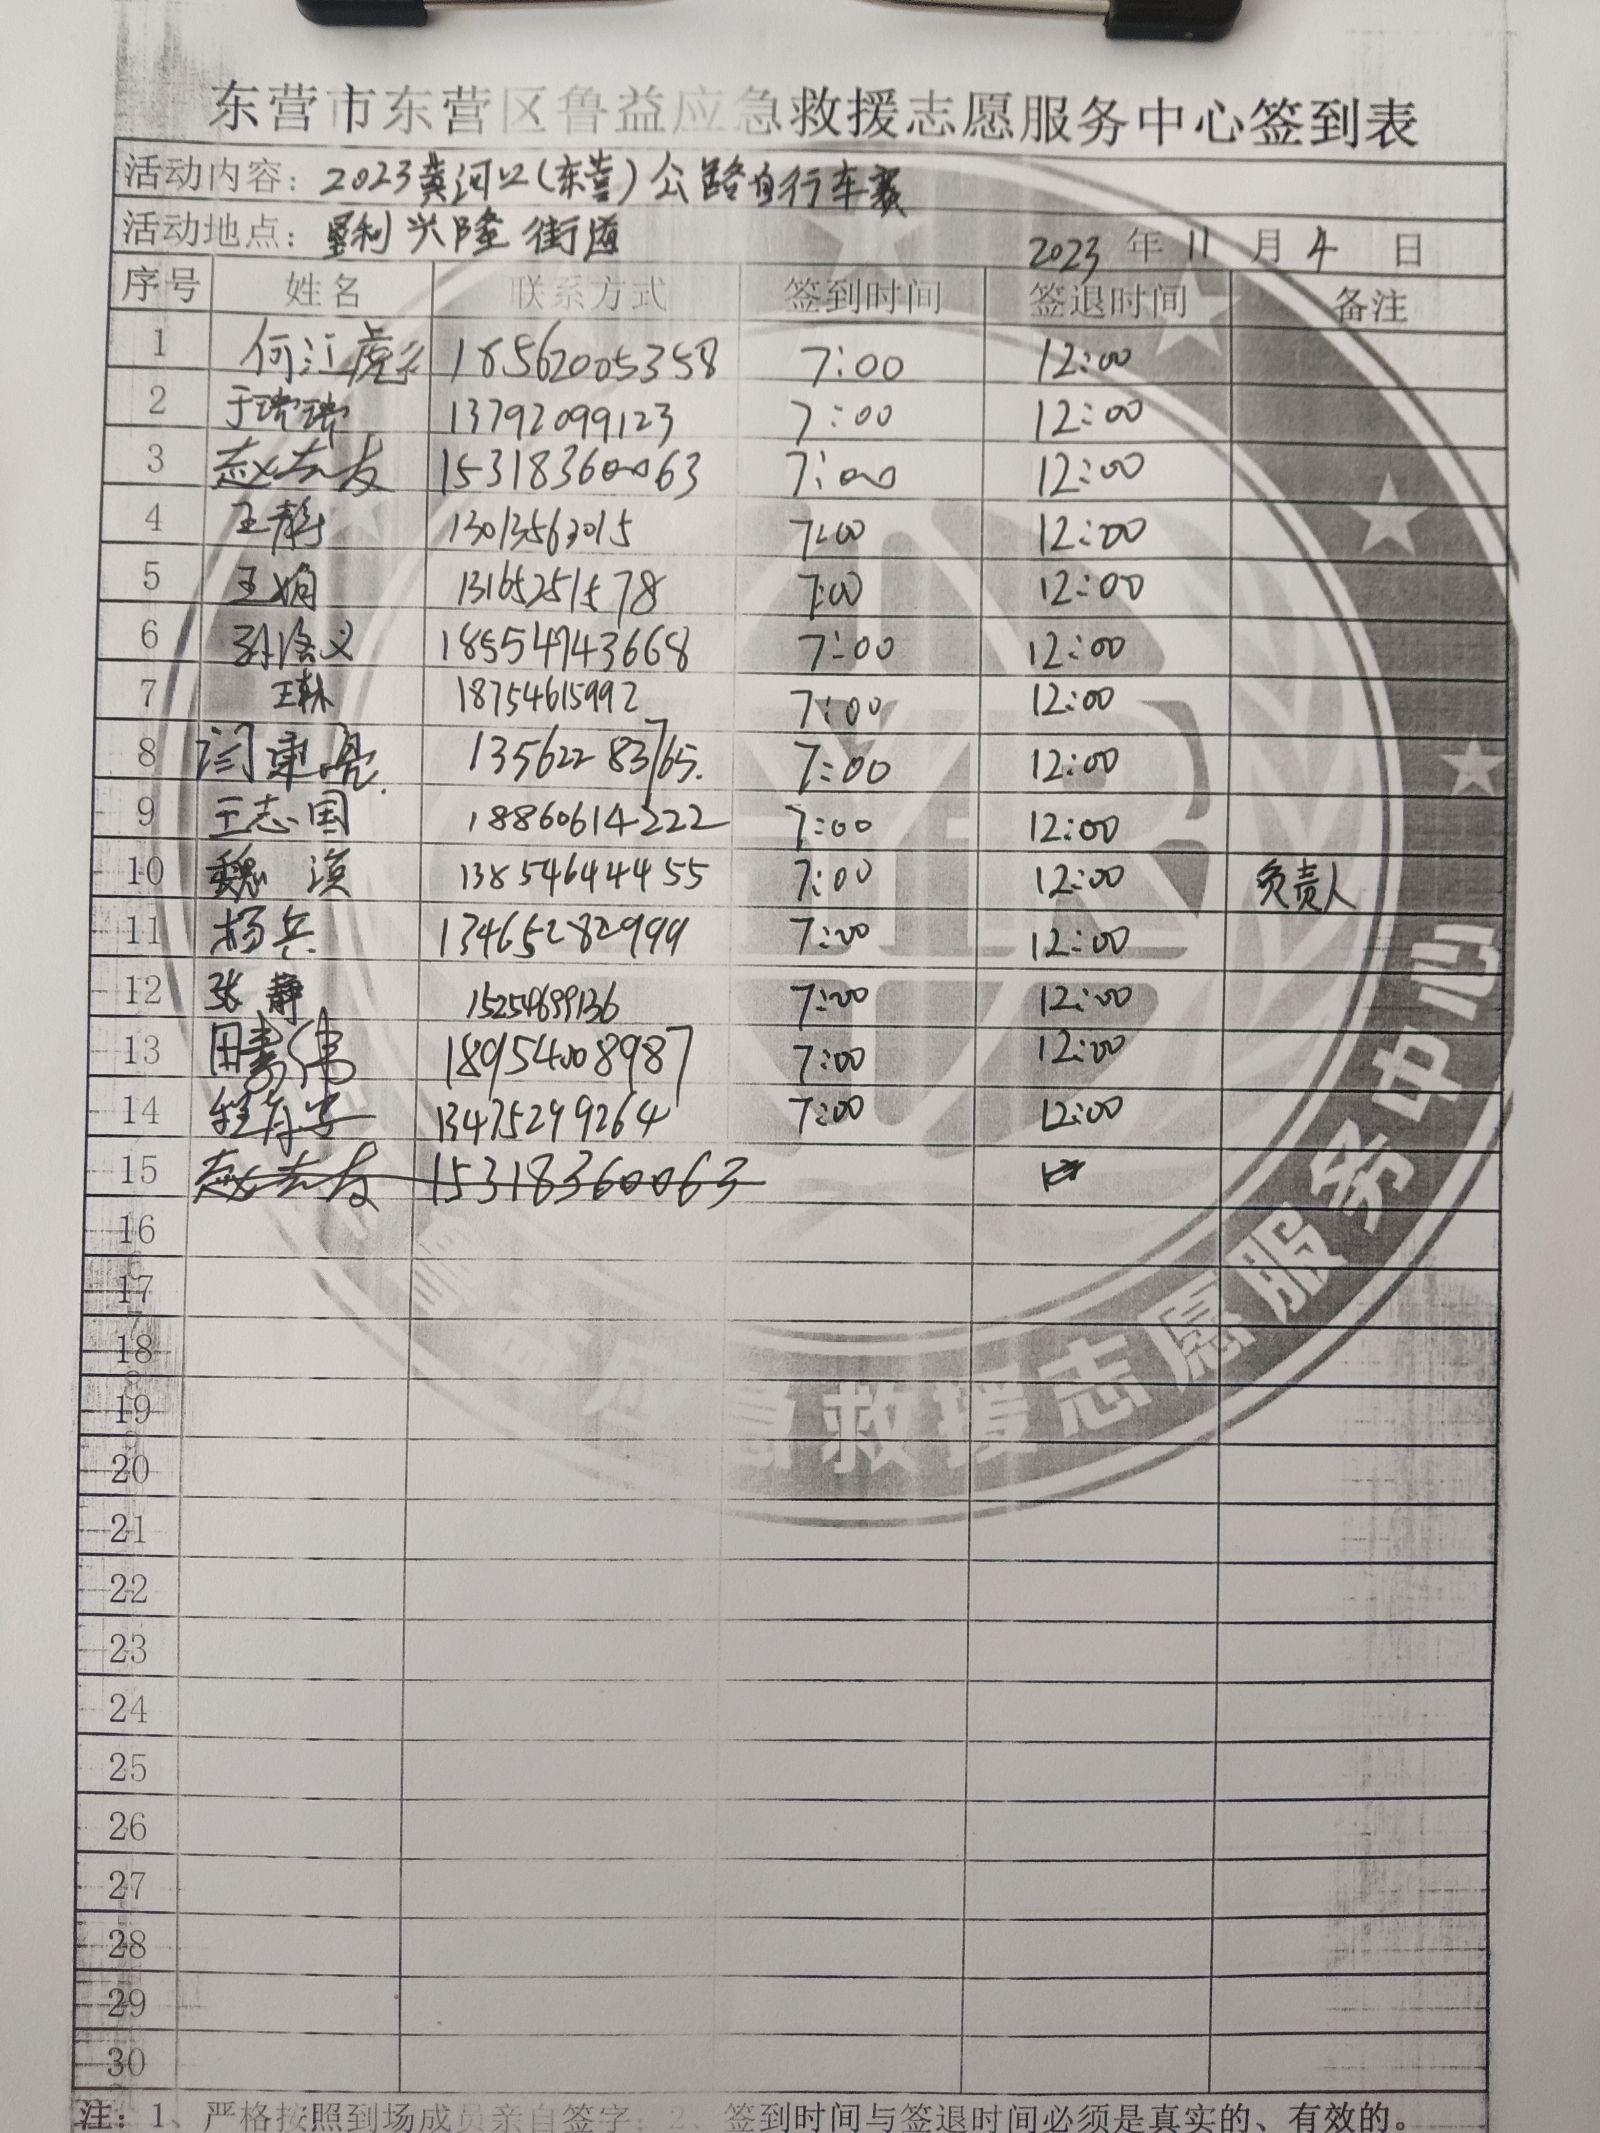 东营市东营区鲁益应急救援志愿服务中心签到表
活动内容：2023黄河口(东营)公路自行车赛
活动地点：垦利兴隆街道 2023年11月4日
序号 姓名 联系方式 签到时间 签退时间 备注
1 何江虎 18562005358 7:00 12:00
2 于瑞瑞 13792099123 7:00 12:00
3 赵志友 15318360063 7:00 12:00
4 王静 13013563015 7:00 12:00
5 王娟 13165251578 7:00 12:00
6 孙洛义 18554743668 7:00 12:00
7 王林 18754615992 7:00 12:00
8 闫东亮 13562283765 7:00 12:00
9 王志国 18860614222 7:00 12:00
10 魏滨 13854644455 7:00 12:00 负责人
11 杨兵 13465282999 7:00 12:00
12 张静 15254699136 7:00 12:00
13 田素伟 18954008987 7:00 12:00
14 13475299264 7:00 12:00
15 赵志友 15318360063
16
17
18
19
20
21
22
23
24
25
26
27
28
29
30
鲁益应急救援志愿服务中心
注：1、严格按照到场成员亲自签字；2、签到时间与签退时间必须是真实的、有效的。